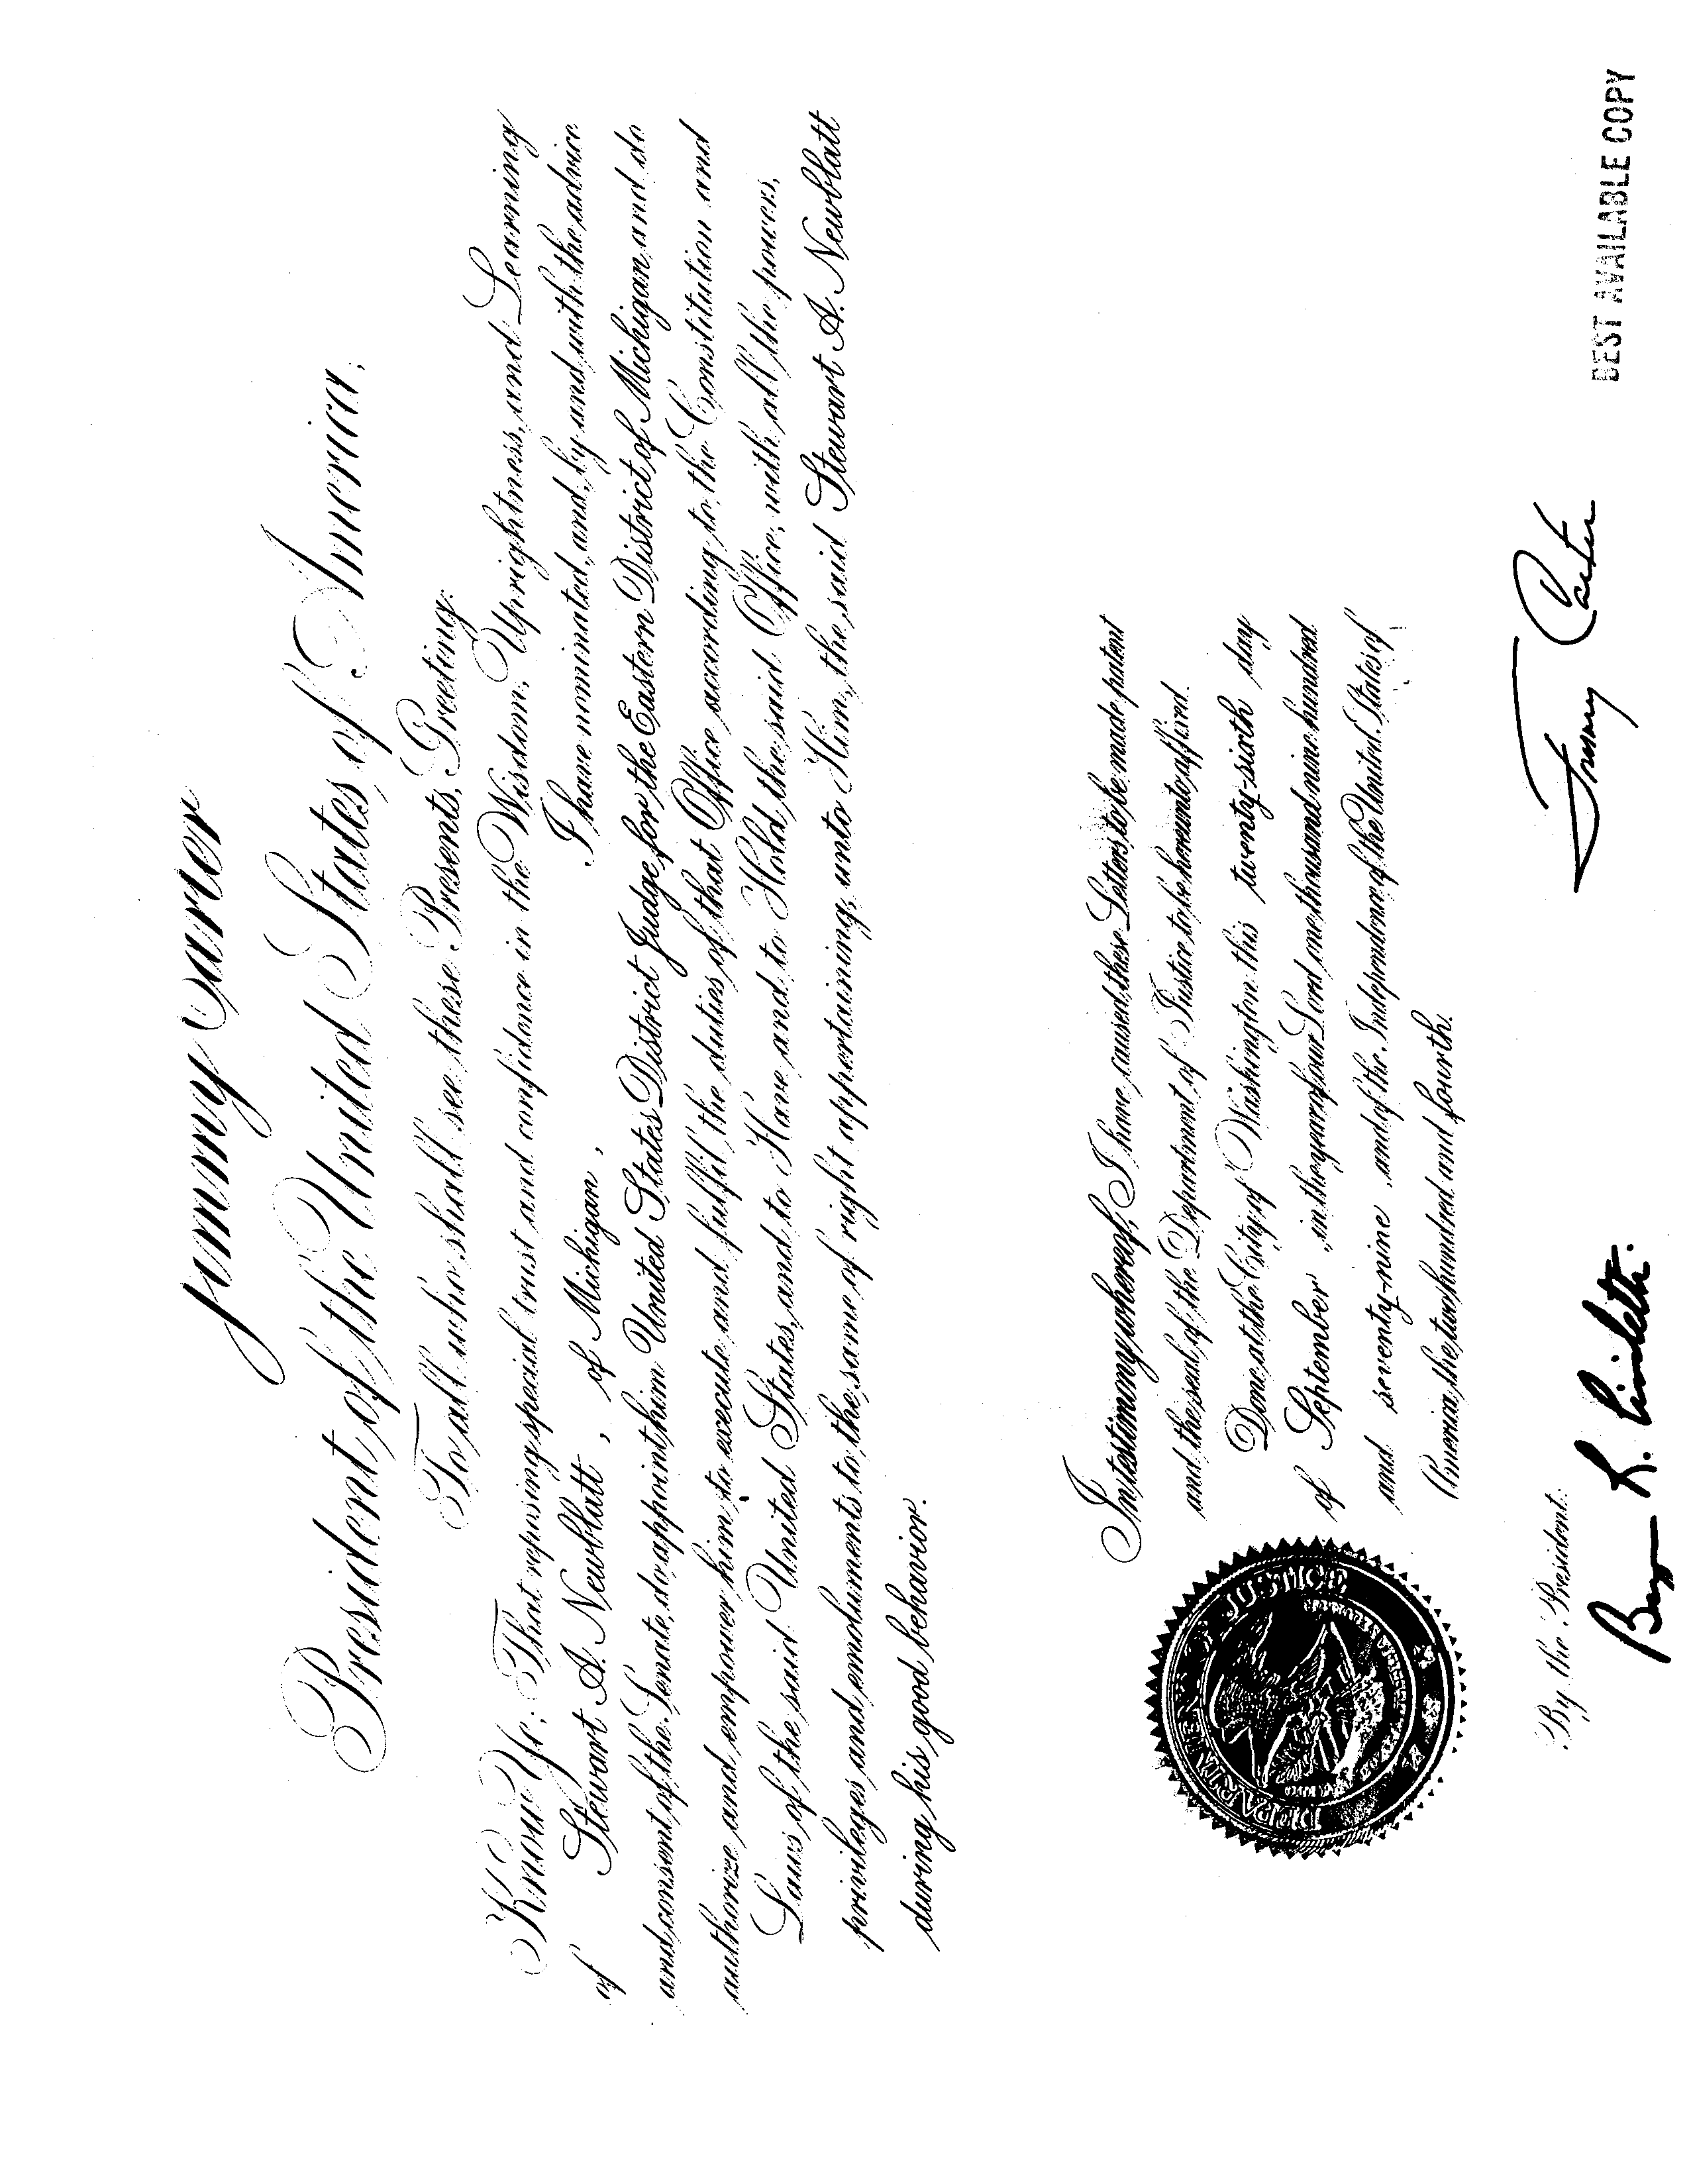 Jimmy Carter
President of the United States of America,
To all who shall see these Presents, Greeting:
Know Ye: That reposing special trust and confidence in the Wisdom, Uprightness, and Learning
of Stewart A. Newblatt, of Michigan, I have nominated, and, by and with the advice
and consent of the Senate, do appoint him United States District Judge for the Eastern District of Michigan, and do
authorize and empower him to execute and fulfil the duties of that Office according to the Constitution and
Laws of the said United States, and to Have and to Hold the said Office, with all the powers,
privileges and emoluments to the same of right appertaining, unto Him, the said Stewart A. Newblatt
during his good behavior.
In testimony whereof, I have caused these Letters to be made patent
and the seal of the Department of Justice to be hereunto affixed.
Done at the City of Washington this twenty-sixth day
of September, in the year of our Lord one thousand nine hundred
and seventy-nine, and of the Independence of the United States of
America the two hundred and fourth.
DEPARTMENT OF JUSTICE
By the President:
Jimmy Carter
BEST AVAILABLE COPY